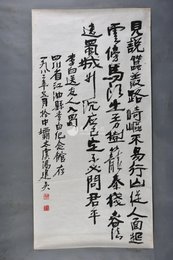 見說蠶叢路崎嶇不易行山從人面起
雲傍馬頭生芳樹籠秦棧春流
遶蜀城升沉應已定不必問君平
李白送友人入蜀
四川省江油縣李白紀念館存
一九八 年 月於中壩